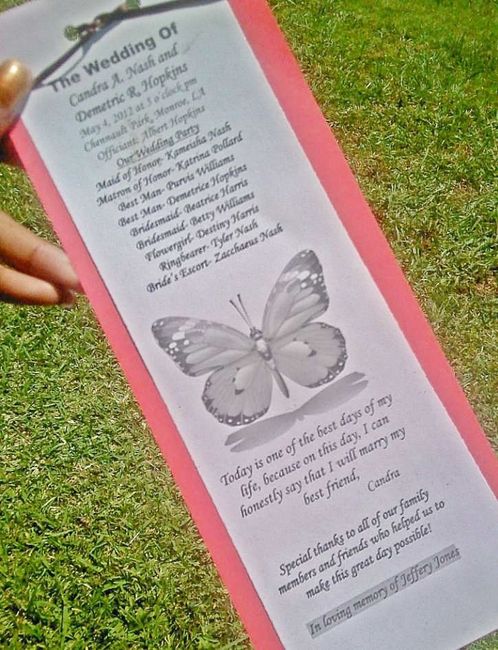 The Wedding Of
Candra A. Nash and
Demetric R. Hopkins
May 4, 2012 at 5 o'clock pm
Chennault Park, Monroe, LA
Officiant: Albert Hopkins
Our Wedding Party
Maid of Honor- Kameisha Nash
Matron of Honor- Katrina Pollard
Best Man- Purvis Williams
Best Man- Demetrice Hopkins
Bridesmaid- Beatrice Harris
Bridesmaid- Betty Williams
Flowergirl- Destiny Harris
Ringbearer- Tyler Nash
Bride's Escort- Zacchaeus Nash
Today is one of the best days of my
life, because on this day, I can
honestly say that I will marry my
best friend,
Candra
Special thanks to all of our family
members and friends who helped us to
make this great day possible!
In loving memory of Jeffery Jones